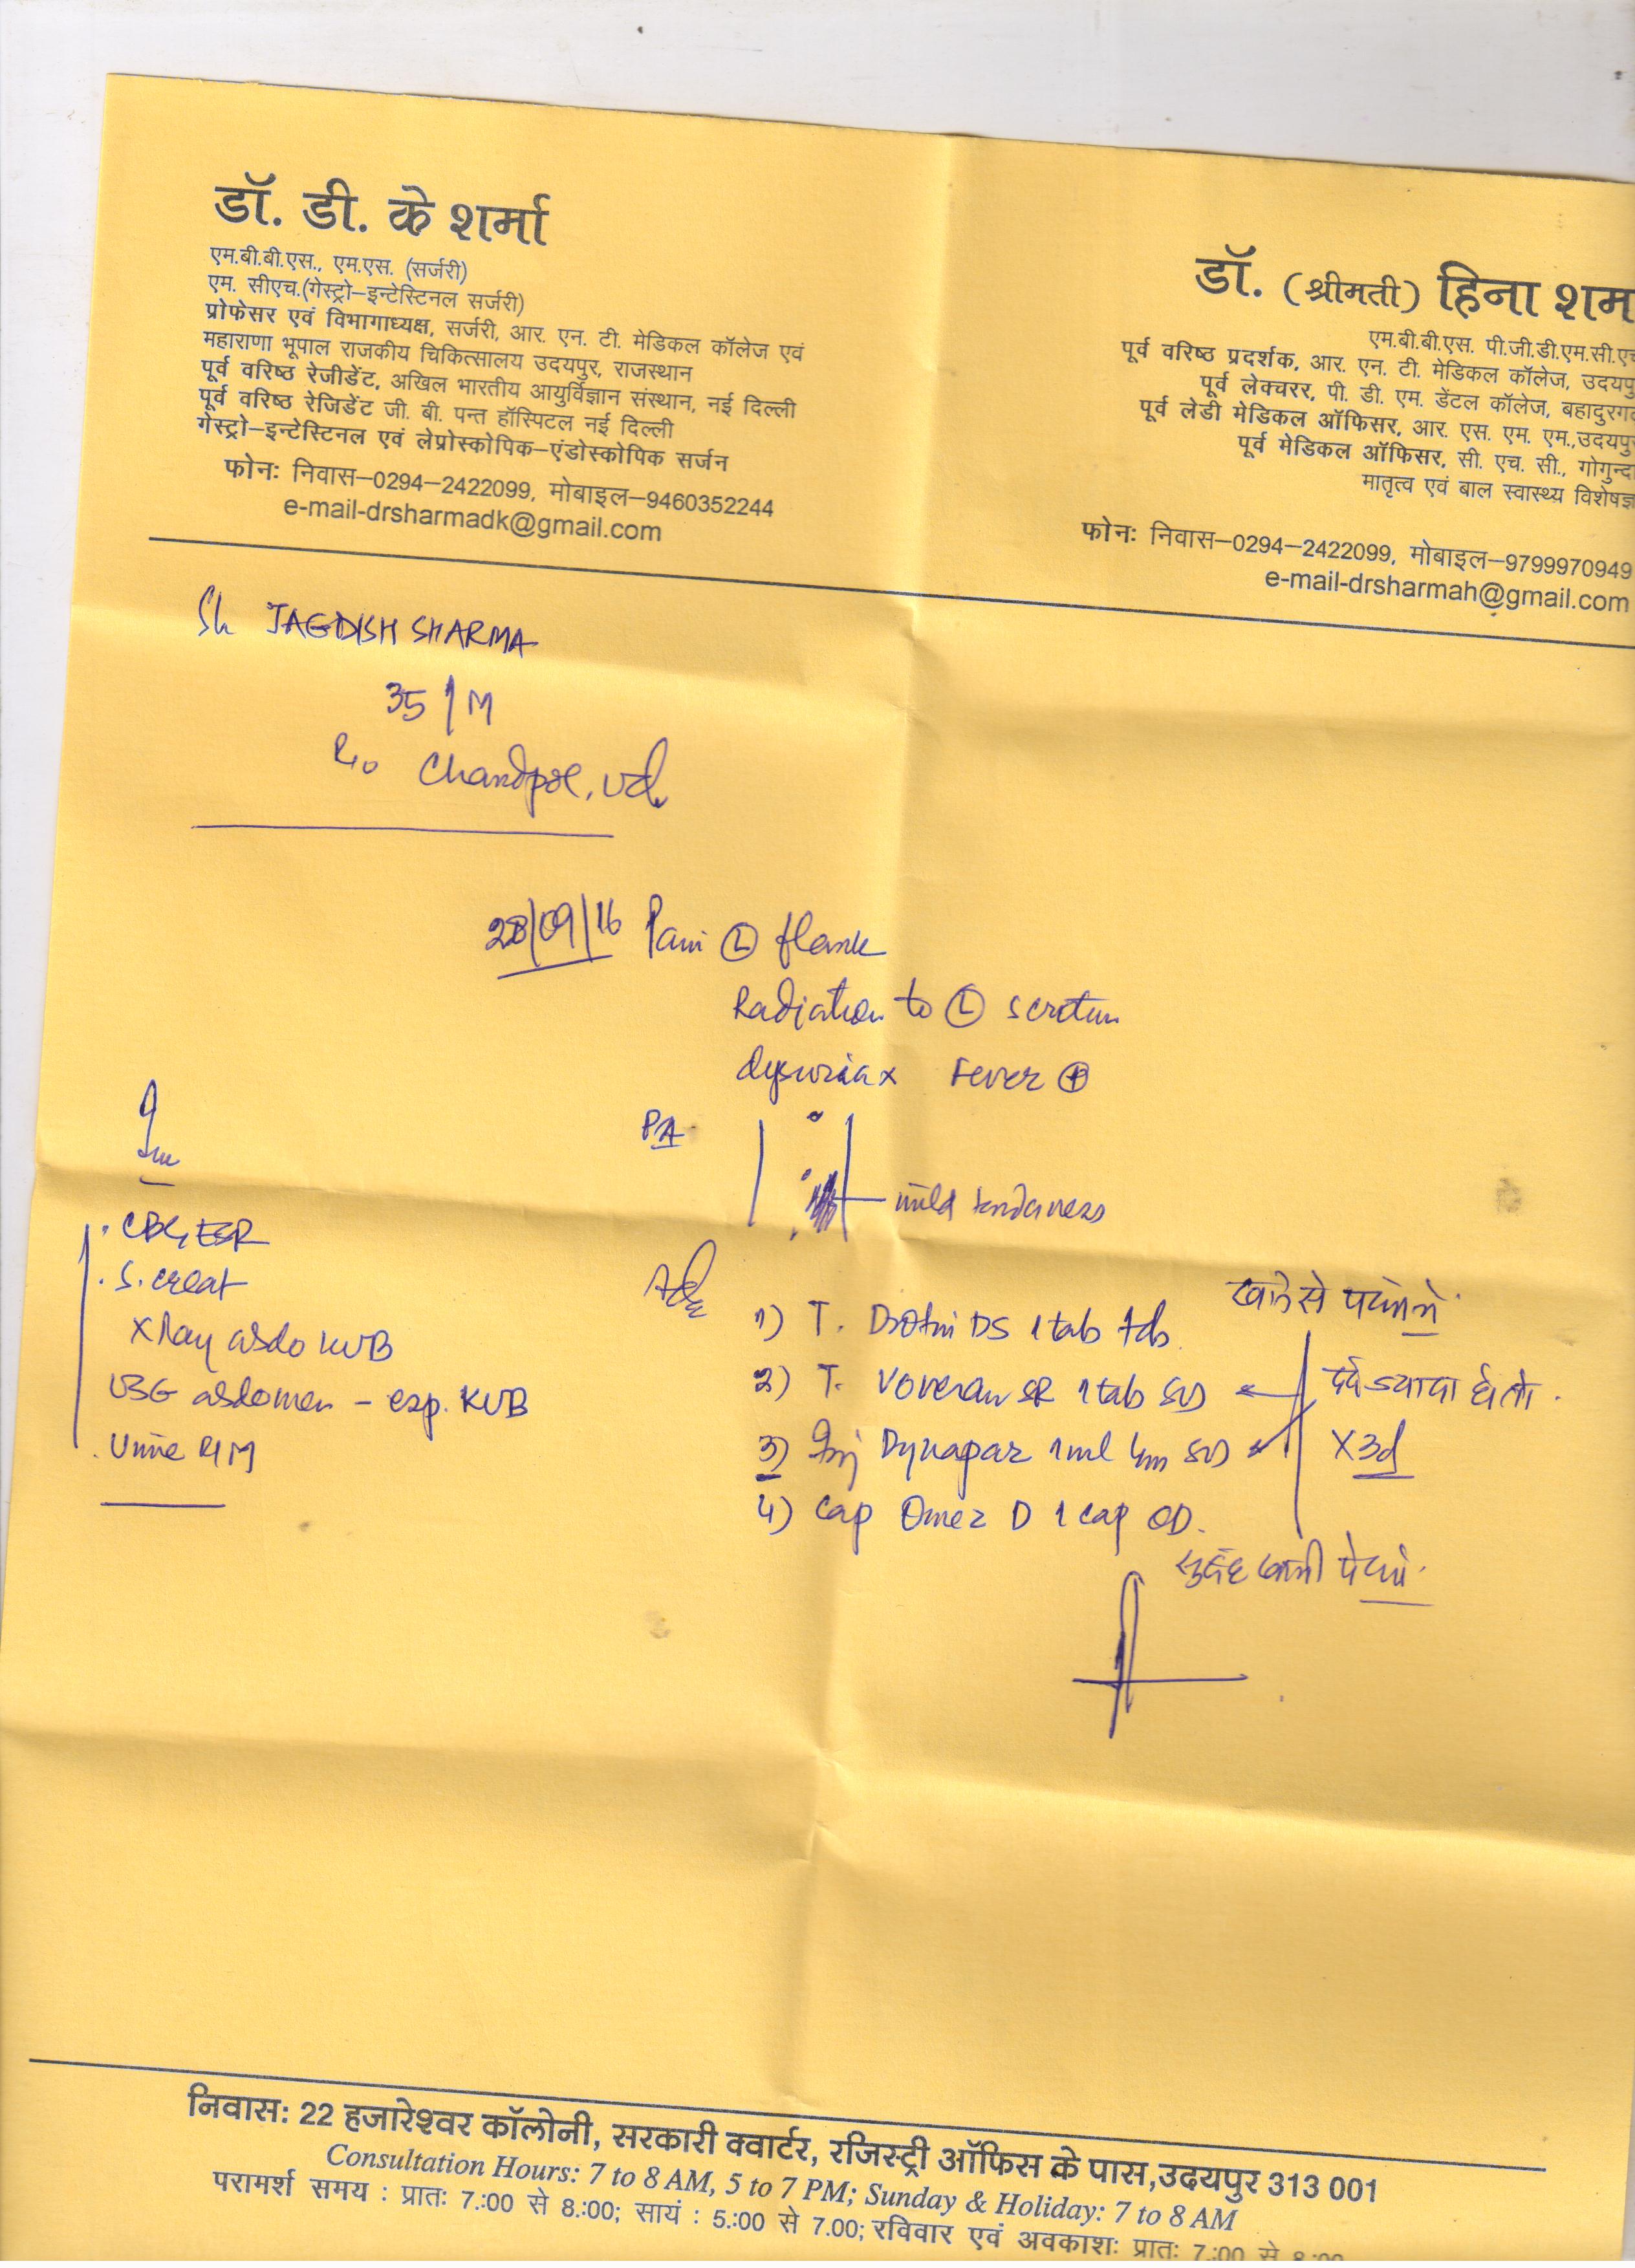 डॉ. डी. के शर्मा
एम.बी.बी.एस., एम.एस. (सर्जरी)
एम. सीएच.(गेस्ट्रो–इन्टेस्टिनल सर्जरी)
प्रोफेसर एवं विभागाध्यक्ष, सर्जरी, आर. एन. टी. मेडिकल कॉलेज एवं
महाराणा भूपाल राजकीय चिकित्सालय उदयपुर, राजस्थान
पूर्व वरिष्ठ रेजीडेंट, अखिल भारतीय आयुर्विज्ञान संस्थान, नई दिल्ली
पूर्व वरिष्ठ रेजिडेंट जी. बी. पन्त हॉस्पिटल नई दिल्ली
गेस्ट्रो–इन्टेस्टिनल एवं लेप्रोस्कोपिक–एंडोस्कोपिक सर्जन
फोन: निवास–0294–2422099, मोबाइल–9460352244
e-mail-drsharmadk@gmail.com
डॉ. (श्रीमती) हिना शम
एम.बी.बी.एस. पी.जी.डी.एम.सी.एच
पूर्व वरिष्ठ प्रदर्शक, आर. एन. टी. मेडिकल कॉलेज, उदयपु
पूर्व लेक्चरर, पी. डी. एम. डेंटल कॉलेज, बहादुरगढ
पूर्व लेडी मेडिकल ऑफिसर, आर. एस. एम. एम.,उदयपुर
पूर्व मेडिकल ऑफिसर, सी. एच. सी., गोगुन्दा
मातृत्व एवं बाल स्वास्थ्य विशेषज्ञ
फोन: निवास–0294–2422099, मोबाइल–9799970949
e-mail-drsharmah@gmail.com
Sh JAGDISH SHARMA
35/M
R/o Chandpol, Ud.
28/09/16 Pain Ⓛ flank
Radiation to Ⓛ scrotum
dysuria x Fever ⊕
PA
mild tenderness
Inv
. CBC, ESR
. S. creat
X Ray abdo KUB
USG abdomen – esp. KUB
. Urine R/M
Adv
खाने से पहले
1) T. Drotin DS 1 tab tds
2) T. Voveran SR 1 tab SOS
दर्द ज्यादा हो तो.
3) Inj Dynapar 1ml Im SOS
X 3d
4) Cap Omez D 1 cap OD.
सुबह खाली पेट
निवास: 22 हजारेश्वर कॉलोनी, सरकारी क्वार्टर, रजिस्ट्री ऑफिस के पास,उदयपुर 313 001
Consultation Hours: 7 to 8 AM, 5 to 7 PM; Sunday & Holiday: 7 to 8 AM
परामर्श समय : प्रातः 7.:00 से 8.:00; सायं : 5.:00 से 7.00; रविवार एवं अवकाशः प्रातः 7.:00 से 8:00